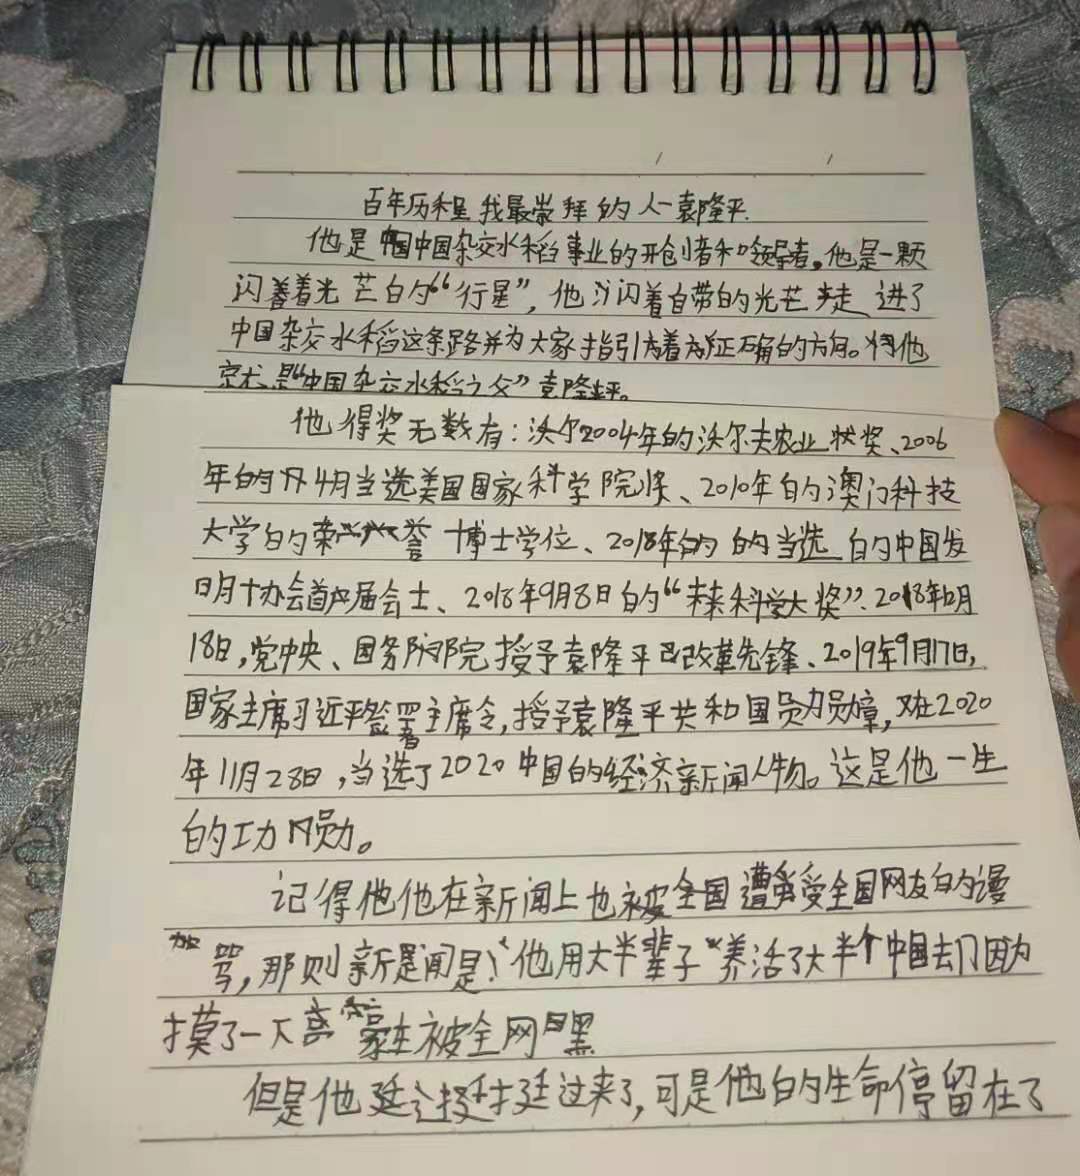 百年历程 我最崇拜的人一袁隆平.
他是中国杂交水稻事业的开创者和领导者。他是一颗
闪着光芒的“行星”，他闪着自带的光芒走进了
中国杂交水稻这条路并为大家指引着正确的方向。
就是“中国杂交水稻之父”袁隆平。
他得奖无数有：2004年的沃尔夫农业奖、2006
年的4月当选美国国家科学院奖、2010年的澳门科技
大学的荣誉博士学位、2018年的当选的中国发
明协会首届会士、2018年9月8日的“未来科学大奖”、2018年12月
18日，党中央、国务院授予袁隆平改革先锋、2019年9月17日，
国家主席习近平签署主席令，授予袁隆平共和国勋章，在2020
年11月28日，当选了2020中国的经济新闻人物。这是他一生
的功勋。
记得他他在新闻上也被全国遭受全国网友的谩
骂，那则新闻是！“他用大半辈子“养活了大半个中国却因为
摸了一下豪车被全网黑
但是他挺过来了，可是他的生命停留在了